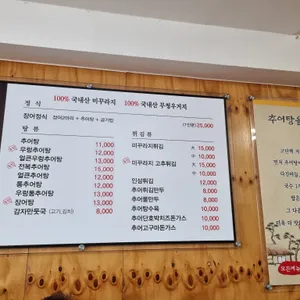 100% 국내산 미꾸라지 100% 국내산 무청우거지
정 식
장어정식 장어2마리 + 추어탕 + 공기밥 (1인분)25,000
탕 류
추어탕 11,000
우렁추어탕 12,000
얼큰우렁추어탕 13,000
전복추어탕 15,000
얼큰추어탕 12,000
통추어탕 12,000
우렁통추어탕 13,000
장어탕 12,000
감자만둣국 (고기,김치) 8,000
튀 김 류
미꾸라지튀김 大 15,000
小 10,000
미꾸라지 고추튀김 大 15,000
小 10,000
인삼튀김 12,000
추어튀김만두 8,000
추어찐만두 8,000
추어탕수육 10,000
추어단호박치즈돈가스 10,000
추어고구마돈가스 10,000
추어탕을